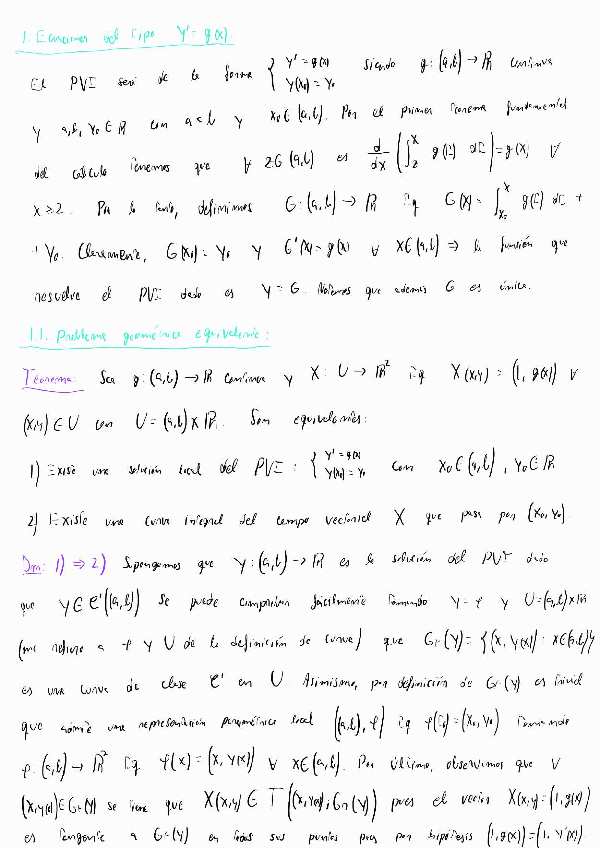 1. Ecuaciones del tipo Y' = g(x).
El PVI será de la forma { Y' = g(x) Y(x₀) = Y₀ siendo g: (a,b) → ℝ continua
y a,b, Y₀ ∈ ℝ con a < b y x₀ ∈ (a,b). Por el primer teorema fundamental
del cálculo tenemos que ∀ z ∈ (a,b) es d/dx (∫_z^x g(t) dt) = g(x) ∀
x ≥ z. Por lo tanto, definimos G: (a,b) → ℝ tq G(x) = ∫_{x₀}^x g(t) dt +
+ Y₀. Claramente, G(x₀) = Y₀ y G'(x) = g(x) ∀ x ∈ (a,b) ⇒ la función que
resuelve el PVI dado es Y = G. Notemos que además G es única.
1.1. Problema geométrico equivalente:
Teorema: Sea g: (a,b) → ℝ continua y X: U → ℝ² tq X(x,y) = (1, g(x)) ∀
(x,y) ∈ U con U = (a,b) × ℝ. Son equivalentes:
1) Existe una solución local del PVI: { Y' = g(x) Y(x₀) = Y₀ con x₀ ∈ (a,b), Y₀ ∈ ℝ
2) Existe una curva integral del campo vectorial X que pasa por (x₀, Y₀).
Dm: 1) ⇒ 2) Supongamos que Y: (a,b) → ℝ es la solución del PVI dado
que Y ∈ C¹((a,b)) se puede comprobar fácilmente tomando Y = φ y U = (a,b) × ℝ
(me refiero a φ y U de la definición de curva) que Gr(Y) = {(x, Y(x)) : x ∈ (a,b)}
es una curva de clase C¹ en U. Asimismo, por definición de Gr(Y) es trivial
que admite una representación paramétrica local ((a,b), φ) tq φ(t₀) = (x₀, Y₀) tomando
φ: (a,b) → ℝ² tq φ(x) = (x, Y(x)) ∀ x ∈ (a,b). Por último, observamos que ∀
(x, Y(x)) ∈ Gr(Y) se tiene que X(x,y) ∈ T((x, Y(x)), Gr(Y)) pues el vector X(x,y) = (1, g(x))
es tangente a Gr(Y) en todos sus puntos pues por hipótesis (1, g(x)) = (1, Y'(x)).